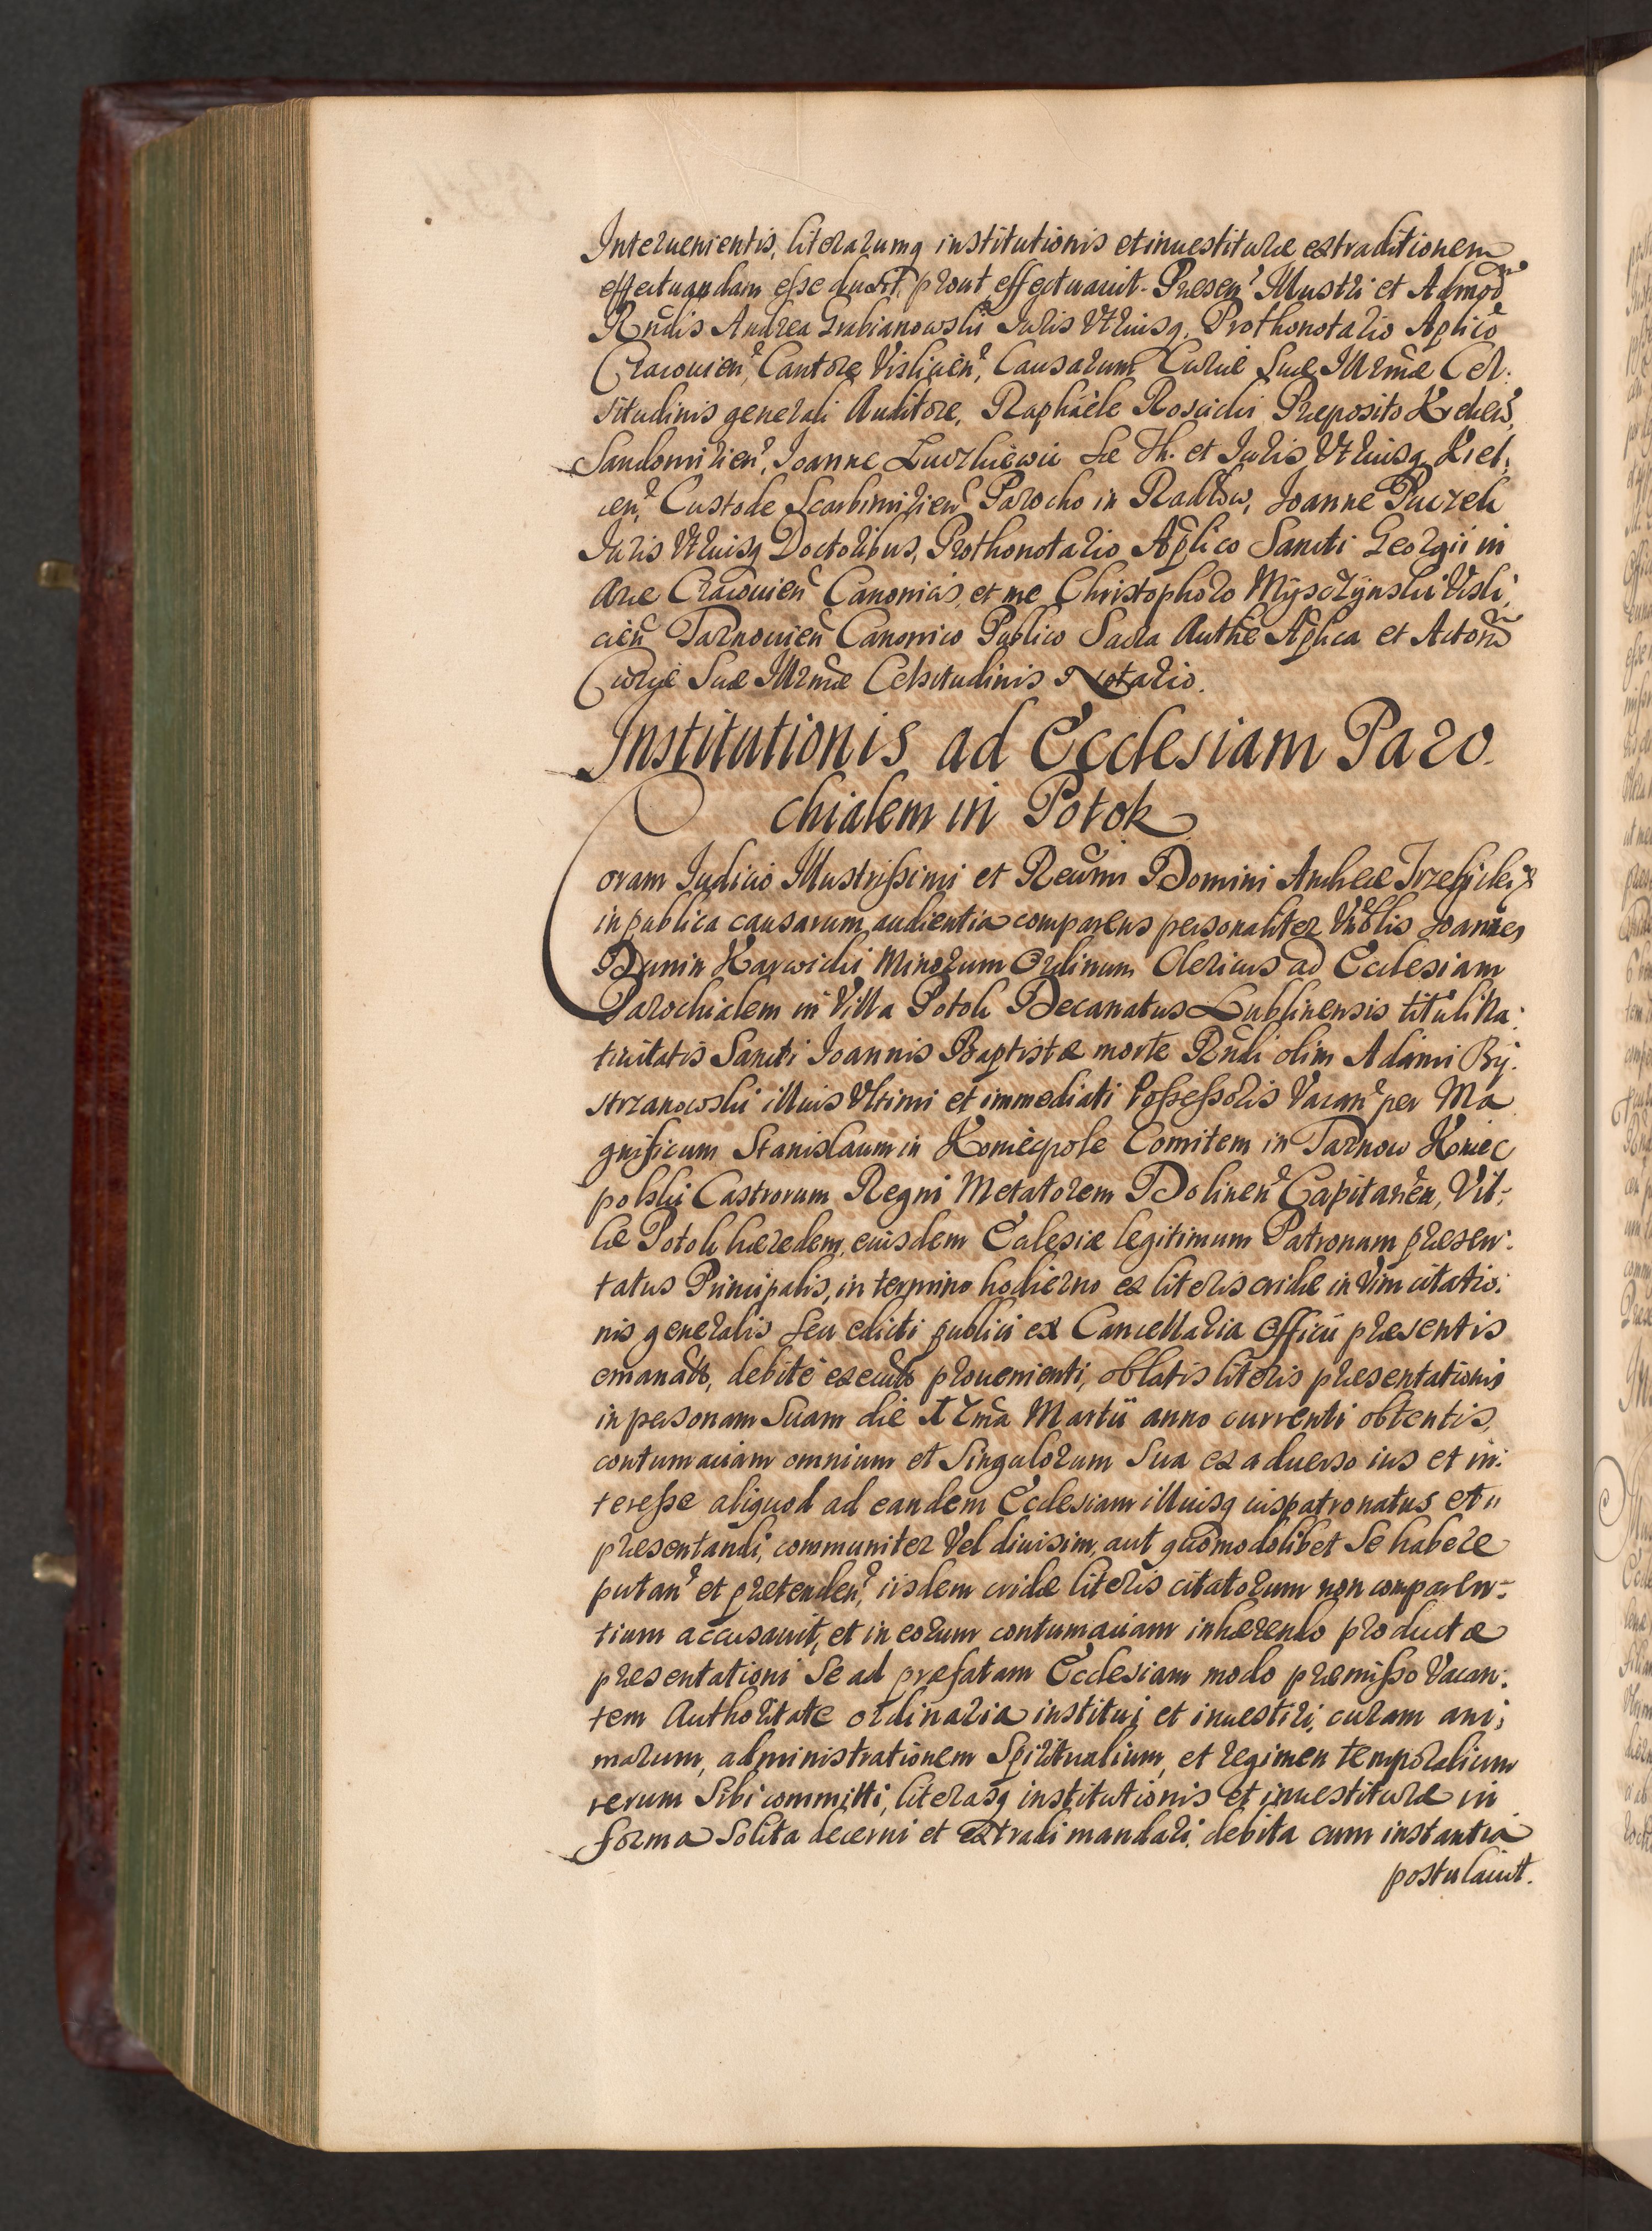 Interuenientis, literarumq institutionis et inuestituræ extraditionem
effectuandam esse duxit prout effectuauit. Presen Illustri et Admod
Rndis Andrea Grabianowski Iuris Vtriusq. Prothonotario Aplico
Cracouien, Cantore Visliciên, Causarum Curiæ Suæ Illrmæ Cel.
situdinis generali Auditore, Raphaele Præposito
Sandomirien, Joanne Sæ Th. et Iuris Vtriusq. Kiel.
cen, Custode Scarbimirien Parocho in Radłow, Joanne
Iuris Vtriusq Doctoribus, Prothonotario Aplico Sancti Georgii in
Arce Cracouien Canonicis, et me Christophoro Mysczynski Visli,
cien Tarnouien Canonico Publico Sacra Authe Aplica et Actorũ
Curiæ Suæ Illrmæ Celsitudinis Notario.
Institutionis ad Ecclesiam Paro.
chialem in Potok
Coram Iudicio Illustrissimi et Reũmi Domini Andreæ Trzebicki &
in publica causarum audientia comparens personaliter Vnblis Joannes
Dunin Karwicki Minorum Ordinum Clericus ad Ecclesiam
Parochialem in Villa Potok Decanatus Lublinensis tituli Na:
tiuitatis Sancti Joannis Baptistæ morte Rndi olim Adami By.
strzanowski illius Vltimi et immediati Possessoris Vacan per Ma
gnificum Stanislaum in Koniecpole Comitem in Tarnow Koniec
polski Castrorum Regni Metatorem Dolinen Capitanẽn, Vil:
læ Potok hæredem, eiusdem Ecclesiæ legitimum Patronum præsen:
tatus Principalis, in termino hodierno ex literis cridæ in Vim citatio:
nis generalis seu edicti publici ex Cancellaria Officii præsentis
emanato, debite executo prouenienti, oblatis literis præsentationis
in personam Suam die Martii anno currenti obtentis,
contumaciam omnium et Singulorum Sua ex aduerso ius et in:
teresse aliquod ad eandem Ecclesiam illiusq iuspatronatus et
præsentandi, communiter Vel diuisim, aut quomodolibet Se habere
putan et prætenden, iisdem cridæ literis citatorum non comparen:
tium accusauit, et in eorum contumaciam inhærendo productæ
præsentationi Se ad præfatam Ecclesiam modo præmisso Vacan:
tem Authoritate ordinaria institui et inuestiri, curam ani;
marum, administrationem Spiritualium, et regimen temporalium
rerum Sibi committi, literasq institutionis et inuestituræ in
forma Solita decerni et extradi mandari, debita cum instantia
postulauit.